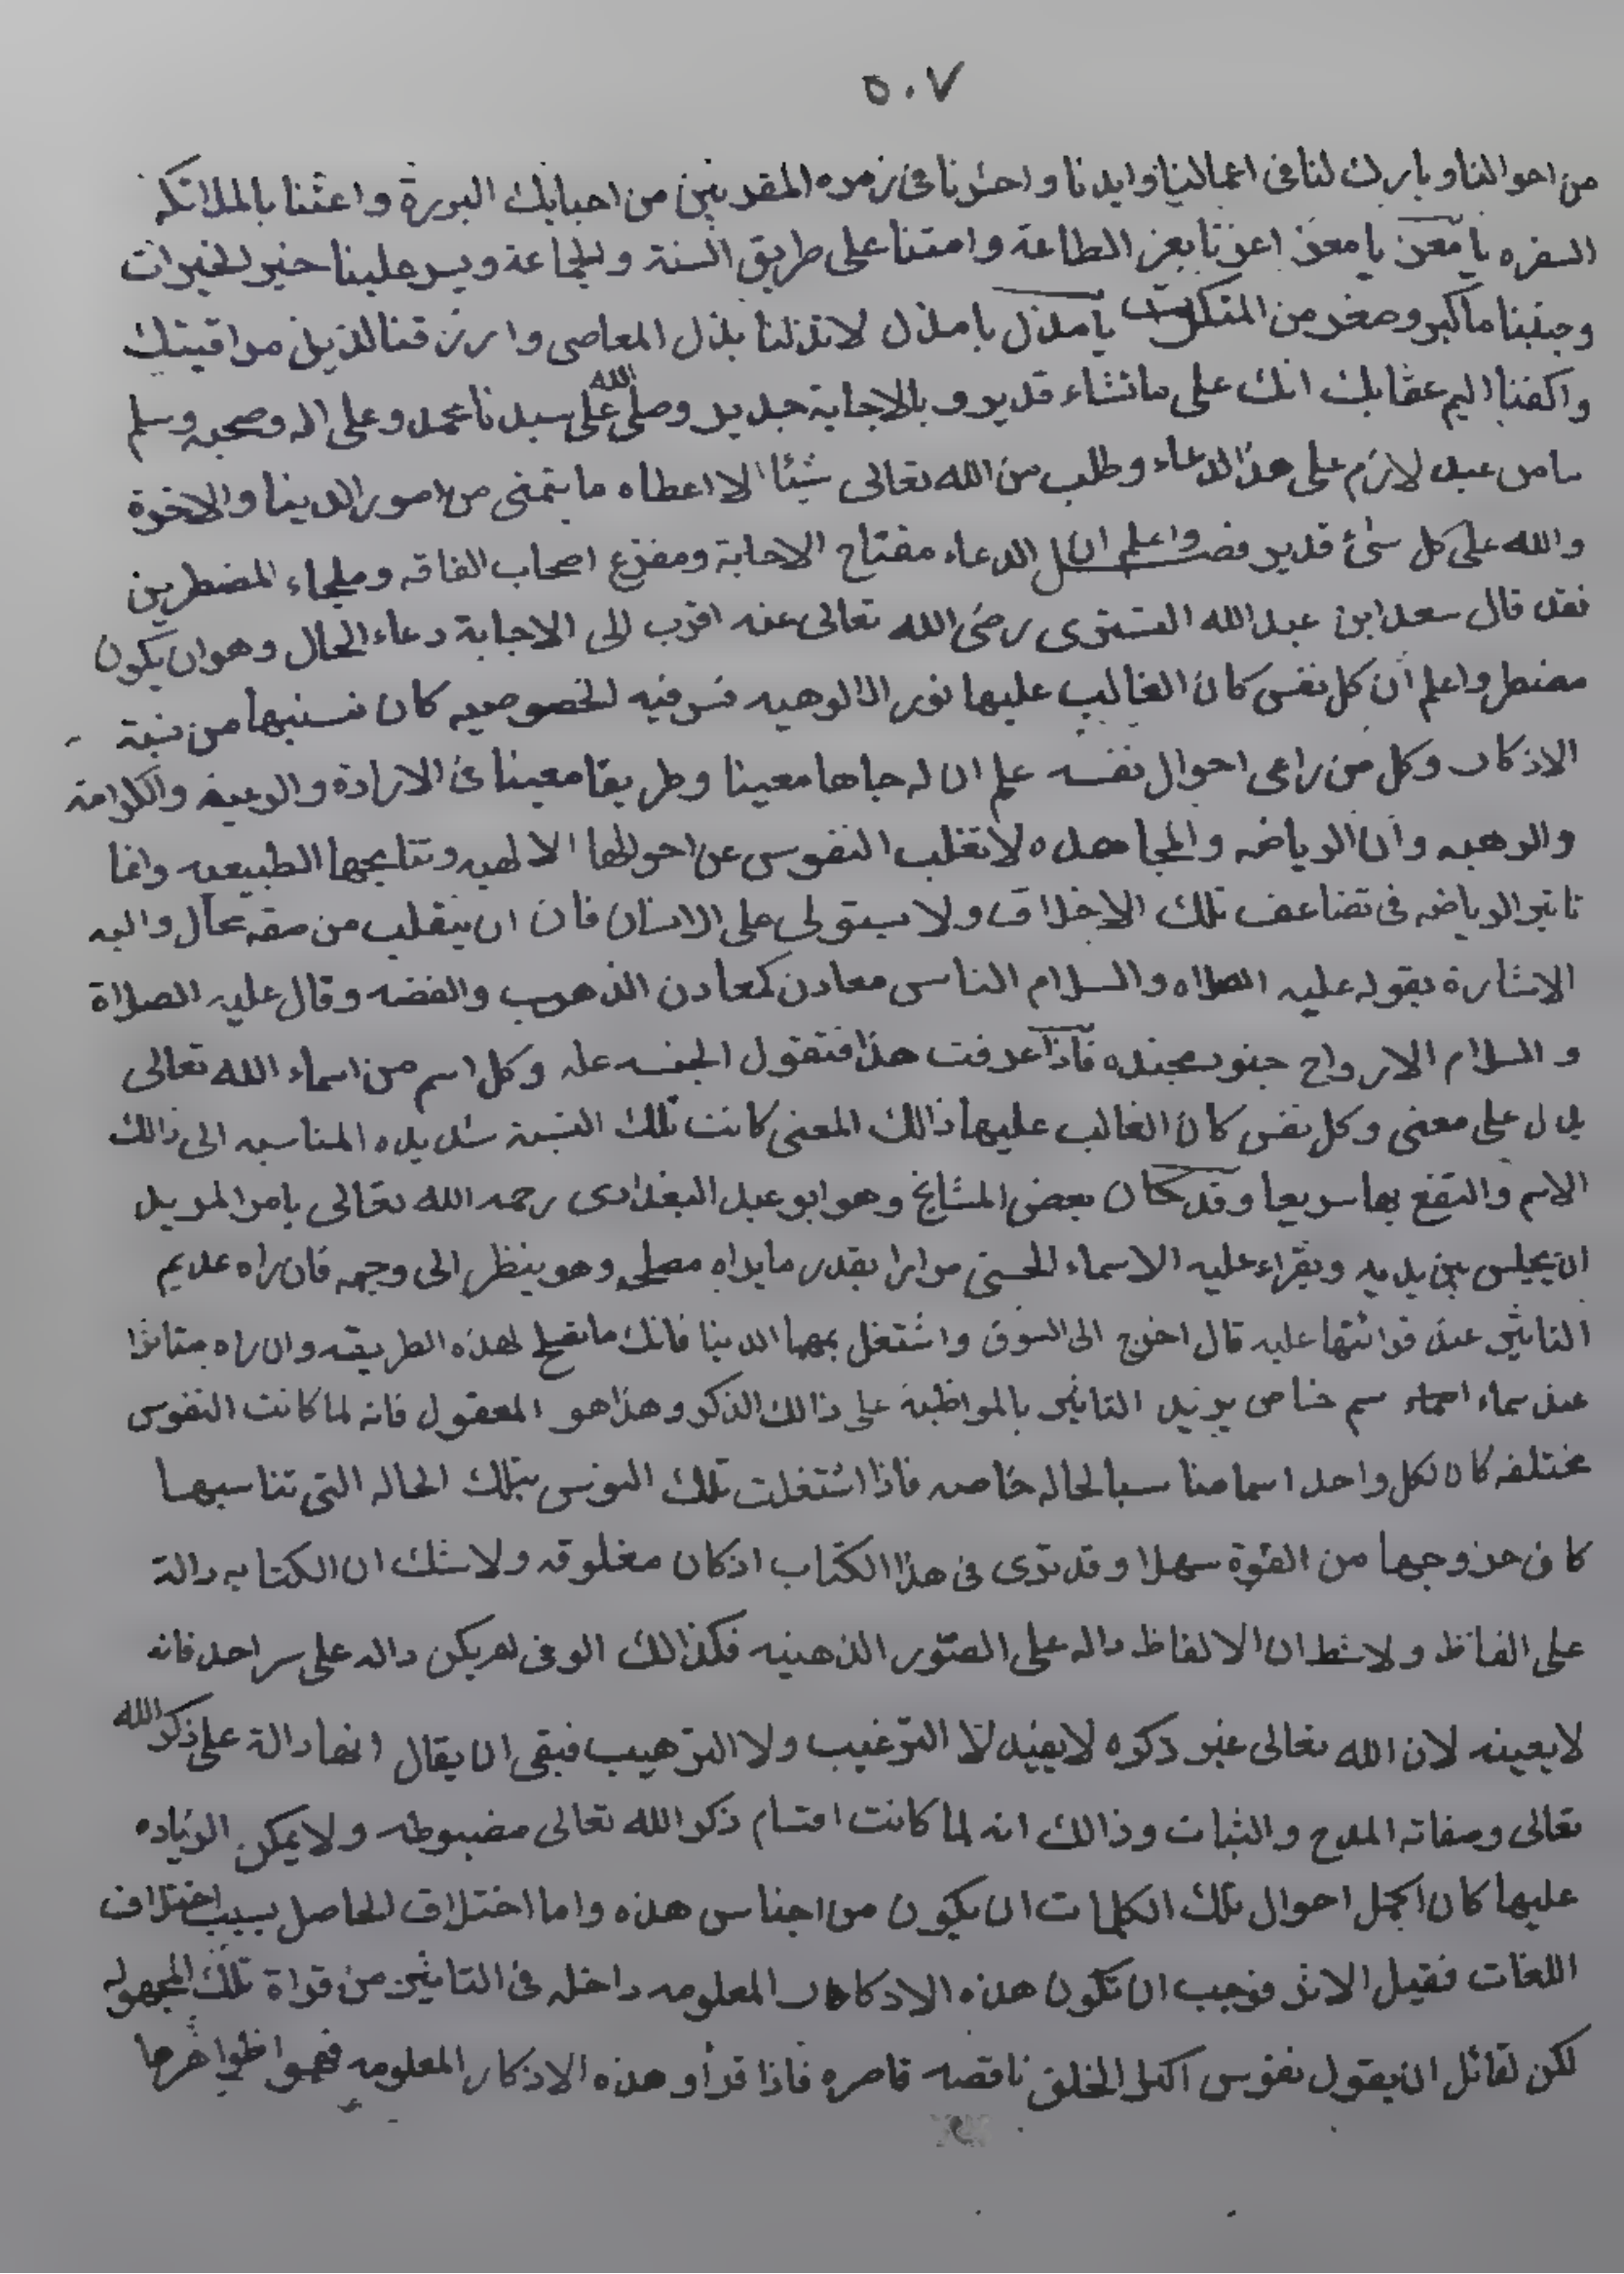 ٥٠٧
من احوالنا وبارك لنا فى اعمالنا وايدنا واحشرنا فى زمره المقربين من احبابك البررة واعثنا بالملائكه
السفره يا معز يا معز اعزنا بعز الطاعة وامتنا على طريق السنة والجماعة ويسر علينا خير الخيرات
وجنبنا ما كبر وصغر من يا مذل يا مذل لا تذلنا بذل المعاصى وارزقنا لذيذ مراقبتك
واكفنا اليم عقابك انك على ما تشاء قدير وبالاجابة جدير وصلى الله على سيدنا محمد وعلى اله وصحبه وسلم
ما من عبد لازم على هذا الدعاء وطلب من الله تعالى شيئا الا اعطاه ما يتمنى من امور الدينا والاخرة
والله على كل شئ قدير فصل واعلم ان الدعاء مفتاح الاجابة ومفزع اصحاب الفاقه وملجاء المضطرين
فقد قال سعد ابن عبد الله التسترى رضى الله تعالى عنه اقرب الى الاجابة دعاء الحال وهو ان يكون
مضطر واعلم أن كل نفس كان الغالب عليها نور الالوهيه كان نسبتها من نسبة
الاذكار وكل من راعى احوال نفسه علم ان له جاها معينا وطريقا معينا فى الارادة والرعيه والكرامة
والرهبه وأن الرياضه والمجاهده لا تغلب النفوسى عن احوالها الالهيه ونتايجها الطبيعيه وانما
تاثير الرياضه فى تضاعف تلك الاخلاق ولا يستولى على الانسان فان ان ينقلب من صفه محال واليه
الاشارة بقوله عليه الصلاه والسلام الناسى معادن كمعادن الذهب والفضه وقال عليه الصلاة
والسلام الارواح جنود مجنده فاذا عرفت هذا فتقول الجنسه عله وكل اسم من اسماء الله تعالى
يدل على معنى وكل نفس كان الغالب عليها ذالك المعنى كانت تلك النسبة شديده المناسبه الى ذالك
الاسم والتفع بها سريعا وقد كان بعض المشايخ وهو ابو عبد البغدادى رحمه الله تعالى يامر المريد
ان يجلس بين يديه ويقراء عليه الاسماء الحسنى مرارا بقدر ما يراه مصلحه وهو ينظر الى وجهه فان راه عديم
التاثير عند قرائتها عليه قال اخرج الى السوق واشتغل الدينا فانك ما تصلح لهذه الطريقه وان راه متاثرا
عند سماء اسماء سم خاص يزيد التاثير بالمواظبه على ذالك الذكر وهذا هو المعقول فانه لما كانت النفوس
مختلفه كان لكل واحد اسما منا سبا لحاله خاصه فاذا اشتغلت تلك النوسى بتلك الحاله التى تناسبها
كان خروجها من القوة سهلا وقد ترى فى هذا الكتاب اذكان مغلوقه ولا شك ان الكتابه دالة
على الفاظ ولا شط ان الالفاظ داله على الصور الذهنيه فكذالك الرقى لم يكن داله على سر احد فانه
لا يعينه لان الله تعالى غير ذكره لا يفيد لا الترغيب ولا الترهيب فبقى ان يقال انها دالة على ذكر الله
تعالى وصفاته المدح والثبات وذالك انه لما كانت اقسام ذكر الله تعالى مضبوطه ولا يمكن الزياده
عليها كان اكمل احوال تلك الكلمات ان يكون من اجناسى هذه واما اختلاف الحاصل بسبب اختلاف
اللغات فقيل الاثر فوجب ان تكون هذه الاذكار المعلومه داخله فى التاثير من قراة تلك المجهوله
لكن لقائل ان يقول نفوس اكثر الخلق ناقصه قاصره فاذا قرأو هذه الاذكار المعلومه فهموا ظواهرها